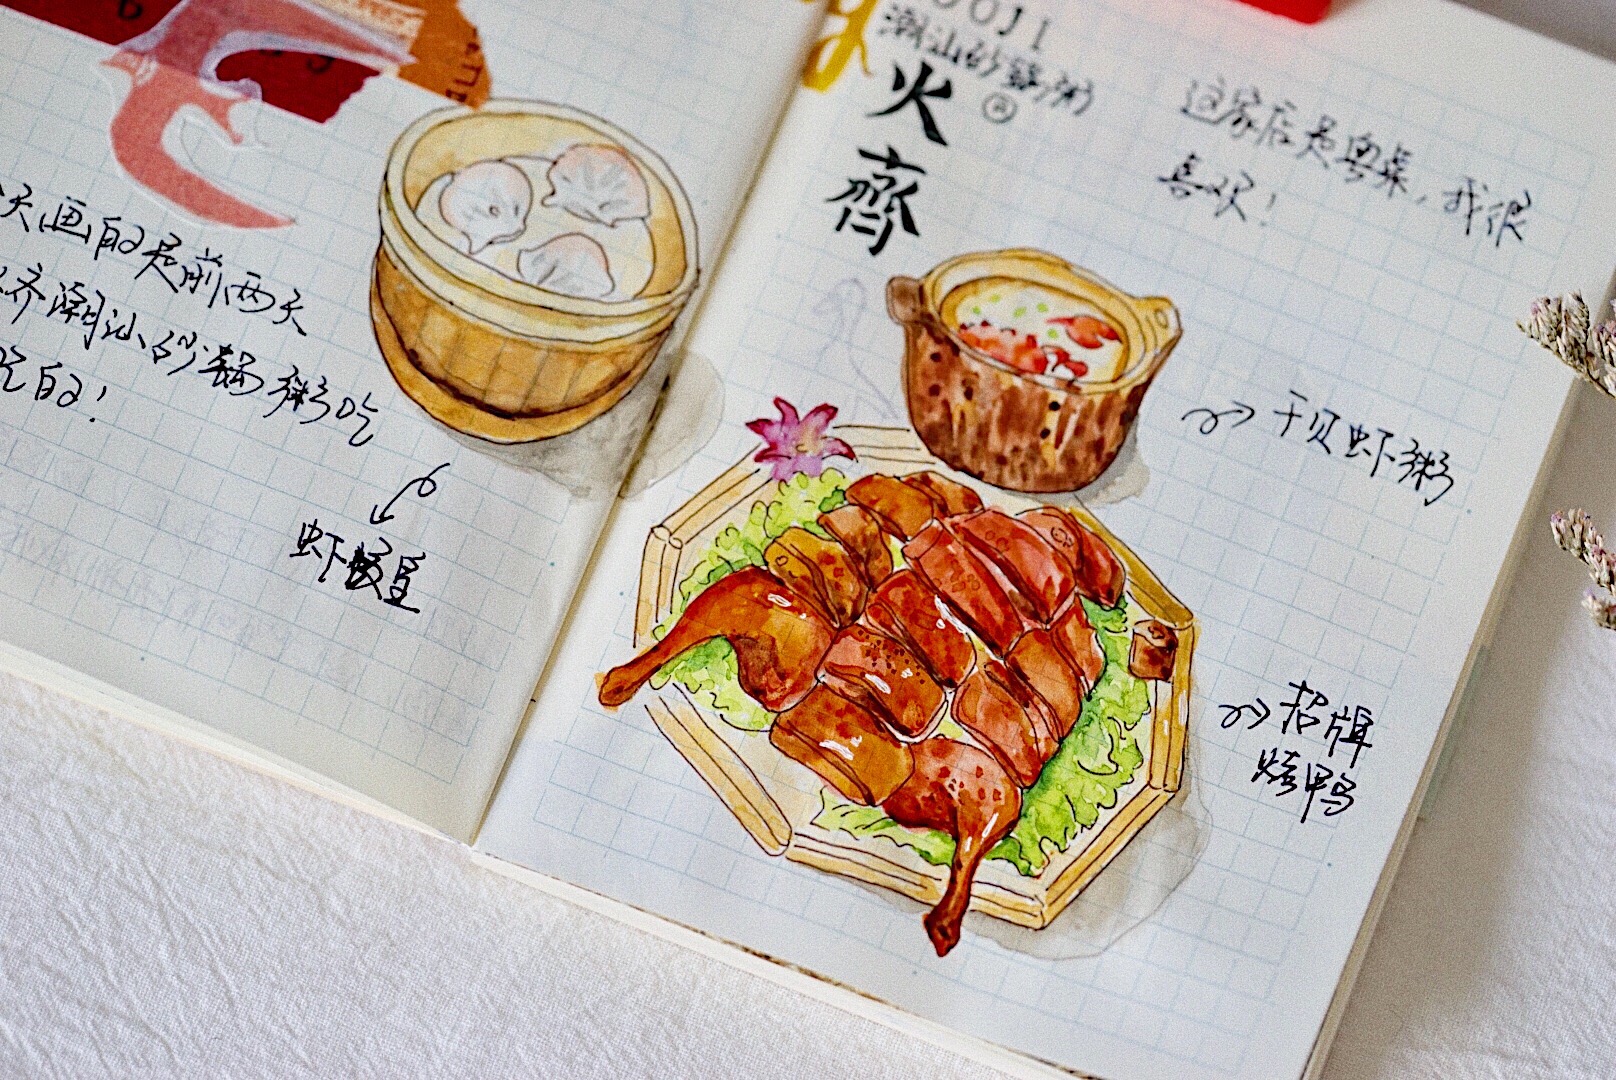 天画的是前两天
齐潮汕砂锅粥吃
吃的！
虾饺皇
OJI
潮汕砂锅粥
火齊
®
这家店是粤菜，我很
喜欢！
干贝虾粥
招牌
烤鸭